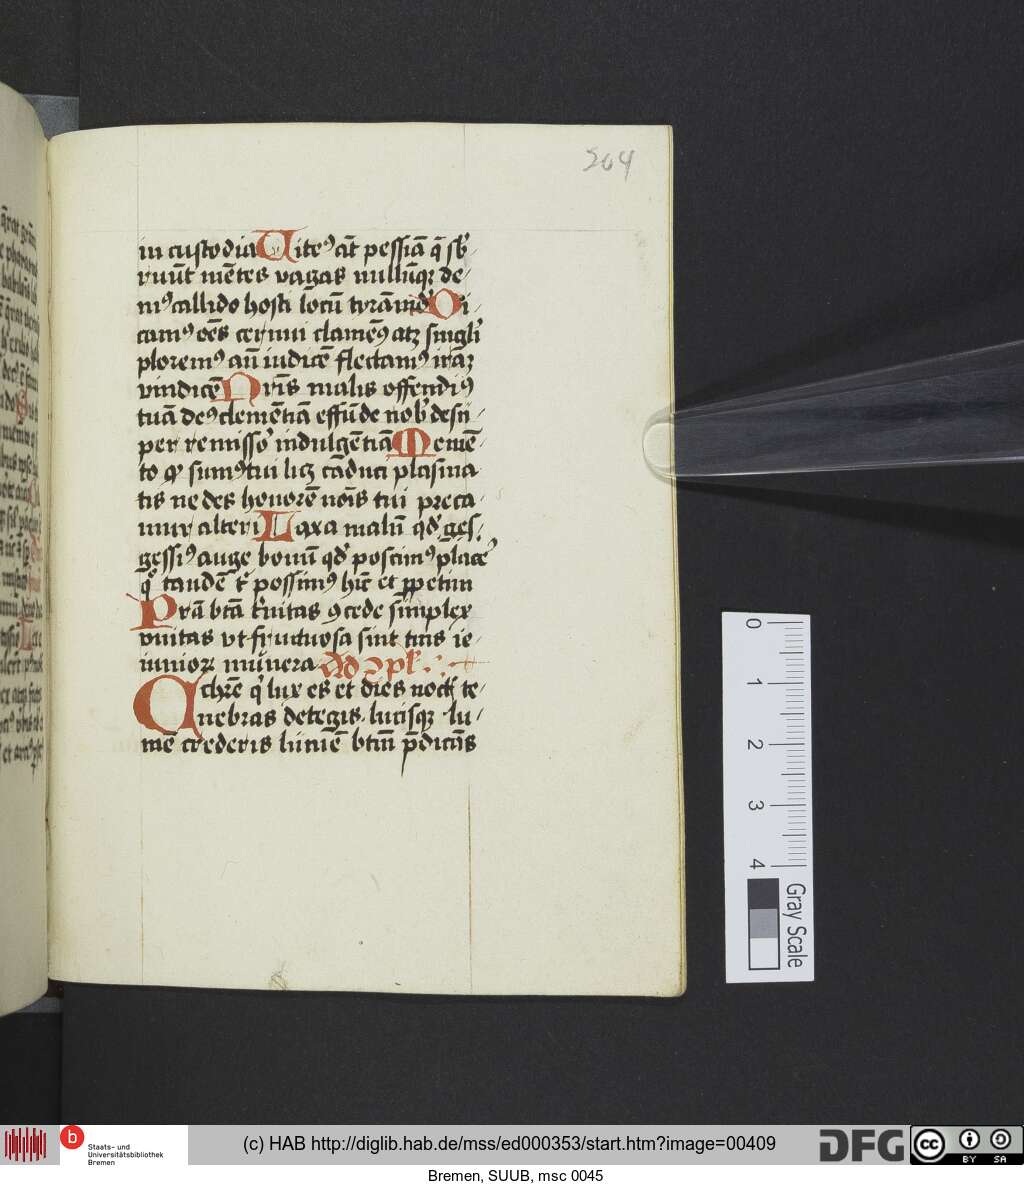 204
in custodia Vitem9 aut̄ pessīa q̄ sb̓
ruūt mētes vagas nullūqꝫ de⸗
m9 callido hosti locū tyrānid̓ Di
cam9 oēs cernui clamēs atqꝫ singli̓
plorem9 an̄ iudicē flectam9 irāꝫ
vindicē Nr̄is malis offendi9
tuā de9 clemētiā effūde nob̓ desu⸗
per remissor̓ indulgētiā Memē⸗
to ꝙ sum9 tui licꝫ cāduci plasma
tis ne des honorē nōis tui preca
mur alteri Laxa malū qd̓ ges⸗
gessi9 auge bonū qd̓ poscim9 place̓
qͦ tandē t̓ possim9 hic̄ et ꝑpetim
Prā btā trīnitas ꝯcede simplex
vnitas vt fructuosa sint tuis ie⸗
iunioꝝ mūnera Ad ꝯpl̓
Cchrē q̓ lux es et dies noct̓ te⸗
nebras detegis lucisqꝫ lu⸗
mē crederis lumē btm̄ p̄dicās
0 1 2 3 4
Gray Scale
b
Staats- und
Universitätsbibliothek
Bremen
(c) HAB http://diglib.hab.de/mss/ed000353/start.htm?image=00409
DFG
cc BY SA
Bremen, SUUB, msc 0045